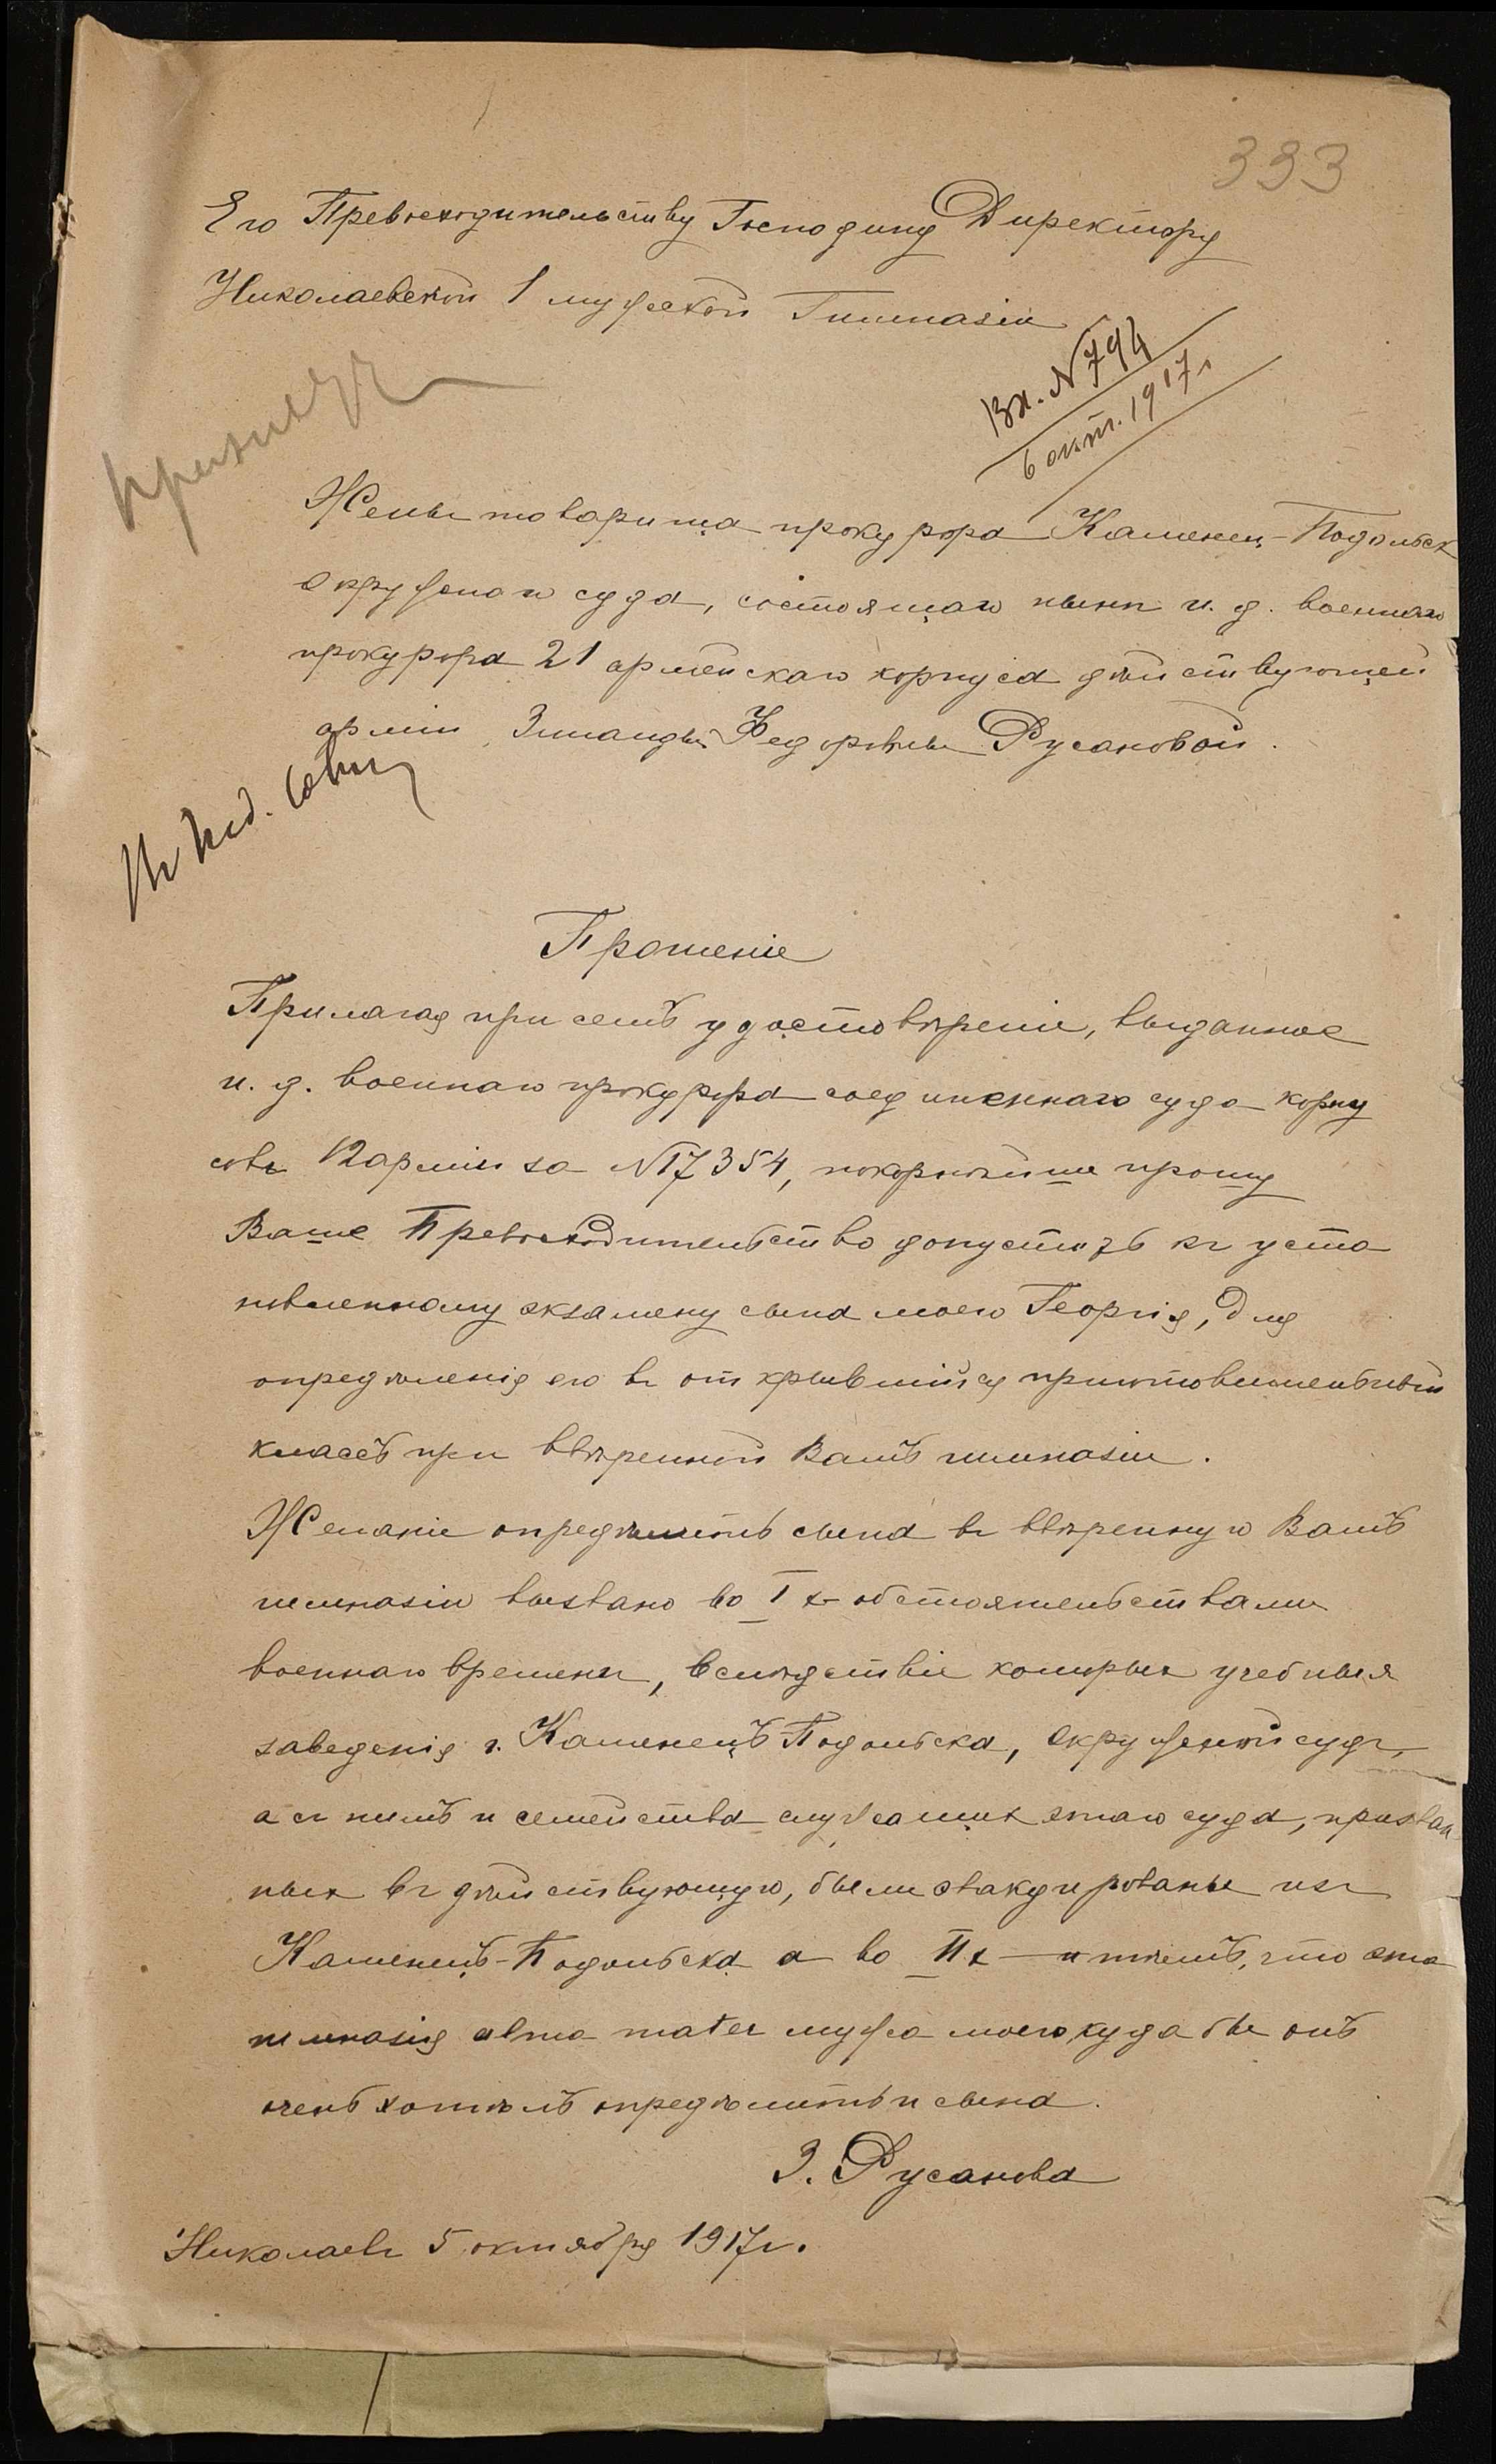 333
Его Превосходительству Господину Директору
Николаевской 1 мужской Гимназіи
Вх. № 794
6 окт. 1917 г.
Жены товарища прокурора Каменец-Подольск
Окружнаго суда, состоящаго нынѣ и. д. военнаго
прокурора 21 армейскаго корпуса дѣйствующей
арміи Зинаиды Федоровны Русановой.
Прошеніе
Прилагая при семъ удостовѣреніе, выданное
и. д. военнаго прокурора соединеннаго суда корпу
совъ 12 арміи за № 7354, покорнѣйше прошу
Ваше Превосходительство допустить къ уста
новленному экзамену сына моего Георгія, для
опредѣленія его въ открывшійся приготовительный
классъ при ввѣренной Вамъ гимназіи.
Желаніе опредѣлить сына въ ввѣренную Вамъ
гимназію вызвано во I х обстоятельствами
военнаго времени, вслѣдствіе которыхъ учебныя
заведенія г. Каменецъ-Подольска, Окружной судъ,
а съ нимъ и семейства служащихъ этаго суда, призван
ныхъ въ дѣйствующую, были эвакуированы изъ
Каменецъ-Подольска а во II х — и тѣмъ, что эта
гимназія alma mater мужа моего куда бы онъ
очень хотѣлъ опредѣлить и сына.
З. Русанова
Николаевъ 5 октября 1917 г.